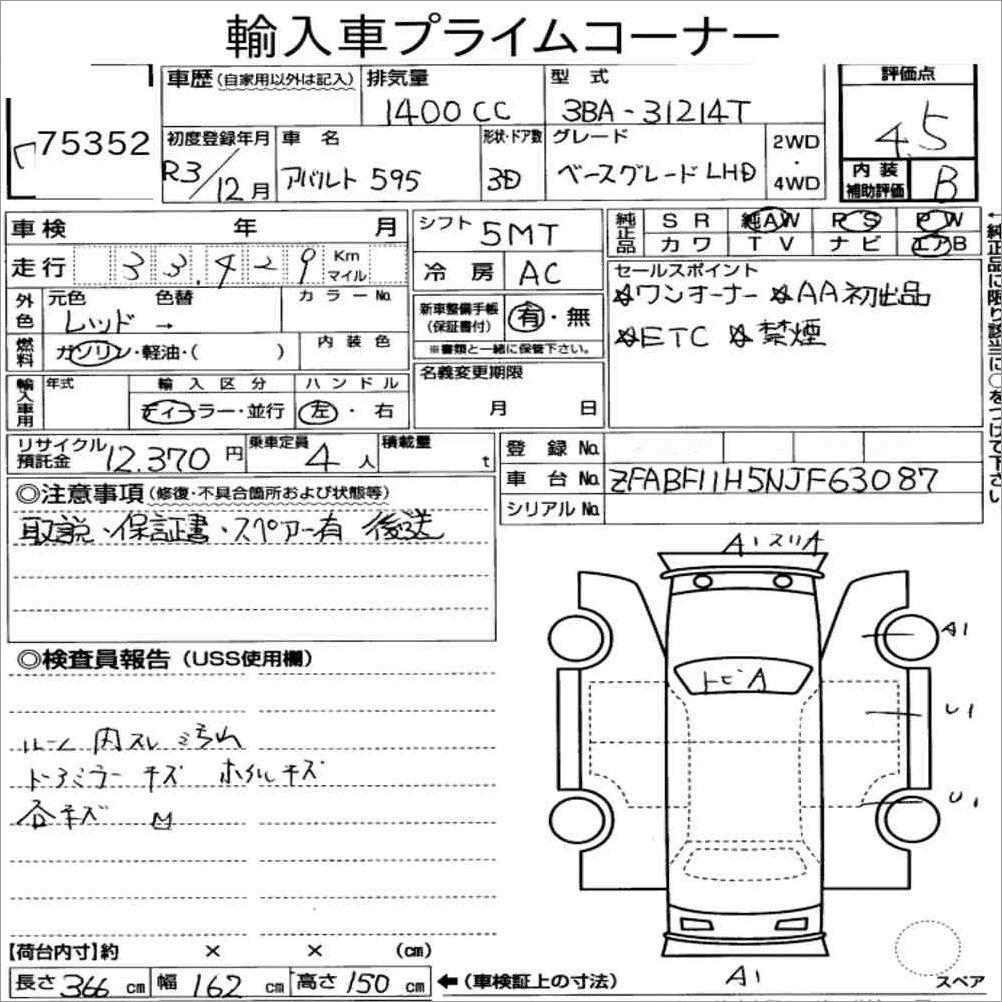 輸入車プライムコーナー
75352
車歴(自家用以外は記入) 排気量 1400CC 型式 3BA-31214T 評価点 4.5
初度登録年月 R3/12月 車名 アバルト595 形状・ドア数 3D グレード ベースグレードLHD 2WD・4WD 内装補助評価 B
車検 年 月
走行 33,429 Km マイル
外色 元色 レッド 色替 → カラーNo.
燃料 ガソリン・軽油・( ) 内装色
輸入車用 年式 輸入区分 ディーラー・並行 ハンドル 左・右
シフト 5MT
冷房 AC
新車整備手帳(保証書付) 有・無
※書類と一緒に保管下さい。
名義変更期限
月 日
純正品 SR 純AW PS PW
カワ TV ナビ エアB
セールスポイント
☆ワンオーナー ☆AA初出品
☆ETC ☆禁煙
←純正品に限り該当に○をつけて下さい
リサイクル預託金 12.370円 乗車定員 4人 積載量 t
登録No.
車台No. ZFABF11H5NJF63087
シリアルNo.
◎注意事項(修復・不具合箇所および状態等)
取説・保証書・スペアー有 後送
◎検査員報告(USS使用欄)
ルーム内スレ汚れ
ドアミラーキズ ホイルキズ
各キズ
A1スリA
トビA
A1
U1
U1
A1
スペア
【荷台内寸】約 × × (cm)
長さ366cm 幅162cm 高さ150cm ←(車検証上の寸法)